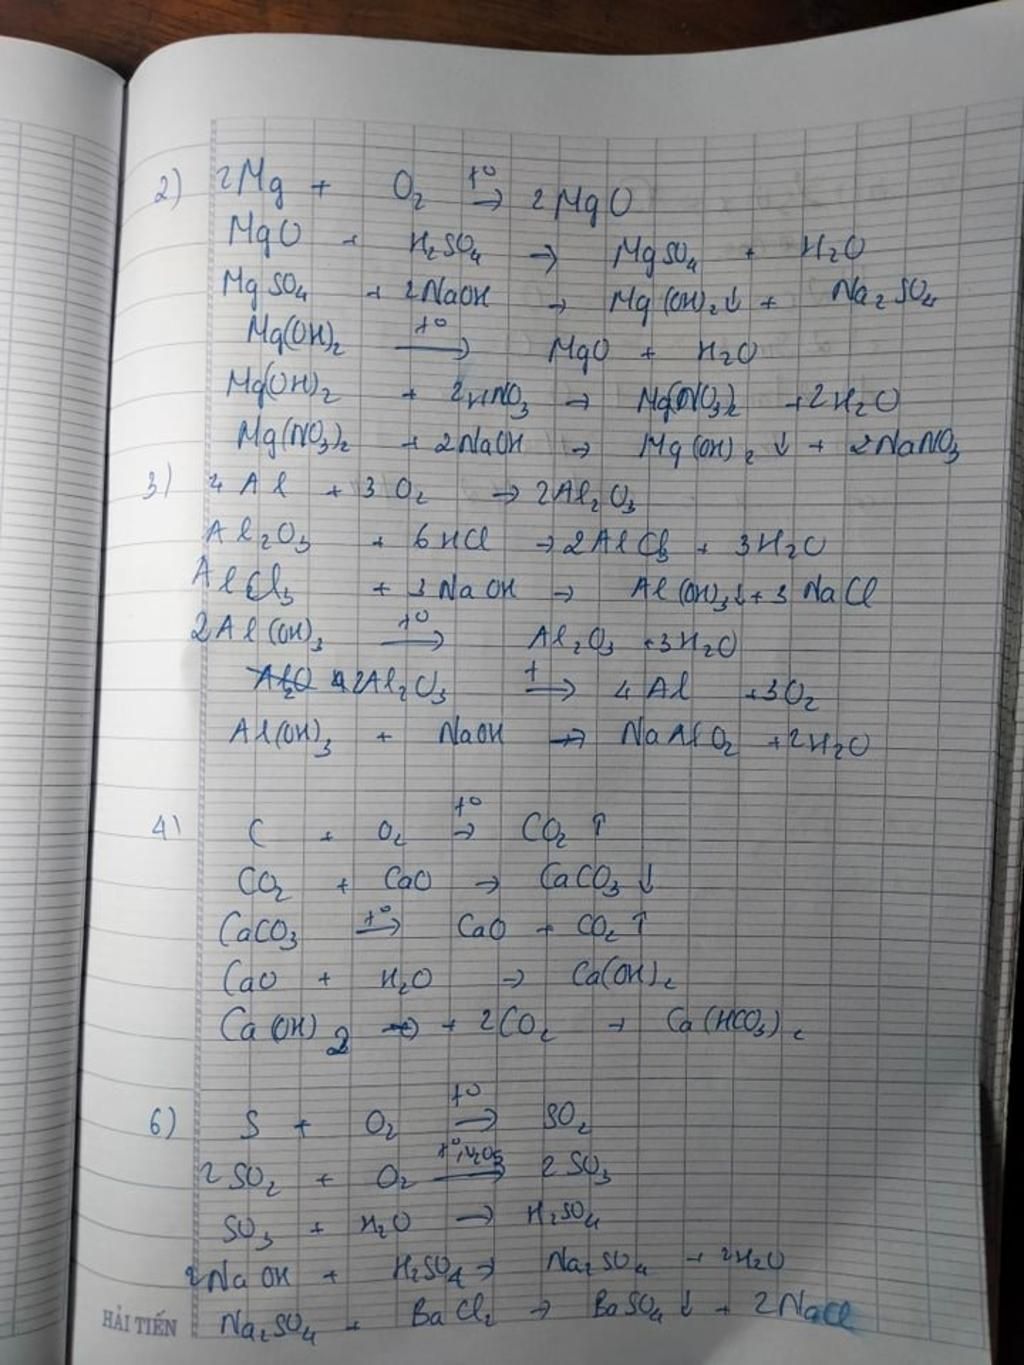 2) 2Mg + O₂ t⁰→ 2MgO
MgO + H₂SO₄ → MgSO₄ + H₂O
MgSO₄ + 2NaOH → Mg(OH)₂↓ + Na₂SO₄
Mg(OH)₂ t⁰→ MgO + H₂O
Mg(OH)₂ + 2HNO₃ → Mg(NO₃)₂ + 2H₂O
Mg(NO₃)₂ + 2NaOH → Mg(OH)₂↓ + 2NaNO₃
3) 4Al + 3O₂ → 2Al₂O₃
Al₂O₃ + 6HCl → 2AlCl₃ + 3H₂O
AlCl₃ + 3NaOH → Al(OH)₃↓ + 3NaCl
2Al(OH)₃ t⁰→ Al₂O₃ + 3H₂O
2Al₂O₃ t→ 4Al + 3O₂
Al(OH)₃ + NaOH → NaAlO₂ + 2H₂O
4) C + O₂ t⁰→ CO₂↑
CO₂ + CaO → CaCO₃↓
CaCO₃ t⁰→ CaO + CO₂↑
CaO + H₂O → Ca(OH)₂
Ca(OH)₂ + 2CO₂ → Ca(HCO₃)₂
6) S + O₂ t⁰→ SO₂
2SO₂ + O₂ t⁰,V₂O₅→ 2SO₃
SO₃ + H₂O → H₂SO₄
2NaOH + H₂SO₄ → Na₂SO₄ + 2H₂O
Na₂SO₄ + BaCl₂ → BaSO₄↓ + 2NaCl
HẢI TIẾN